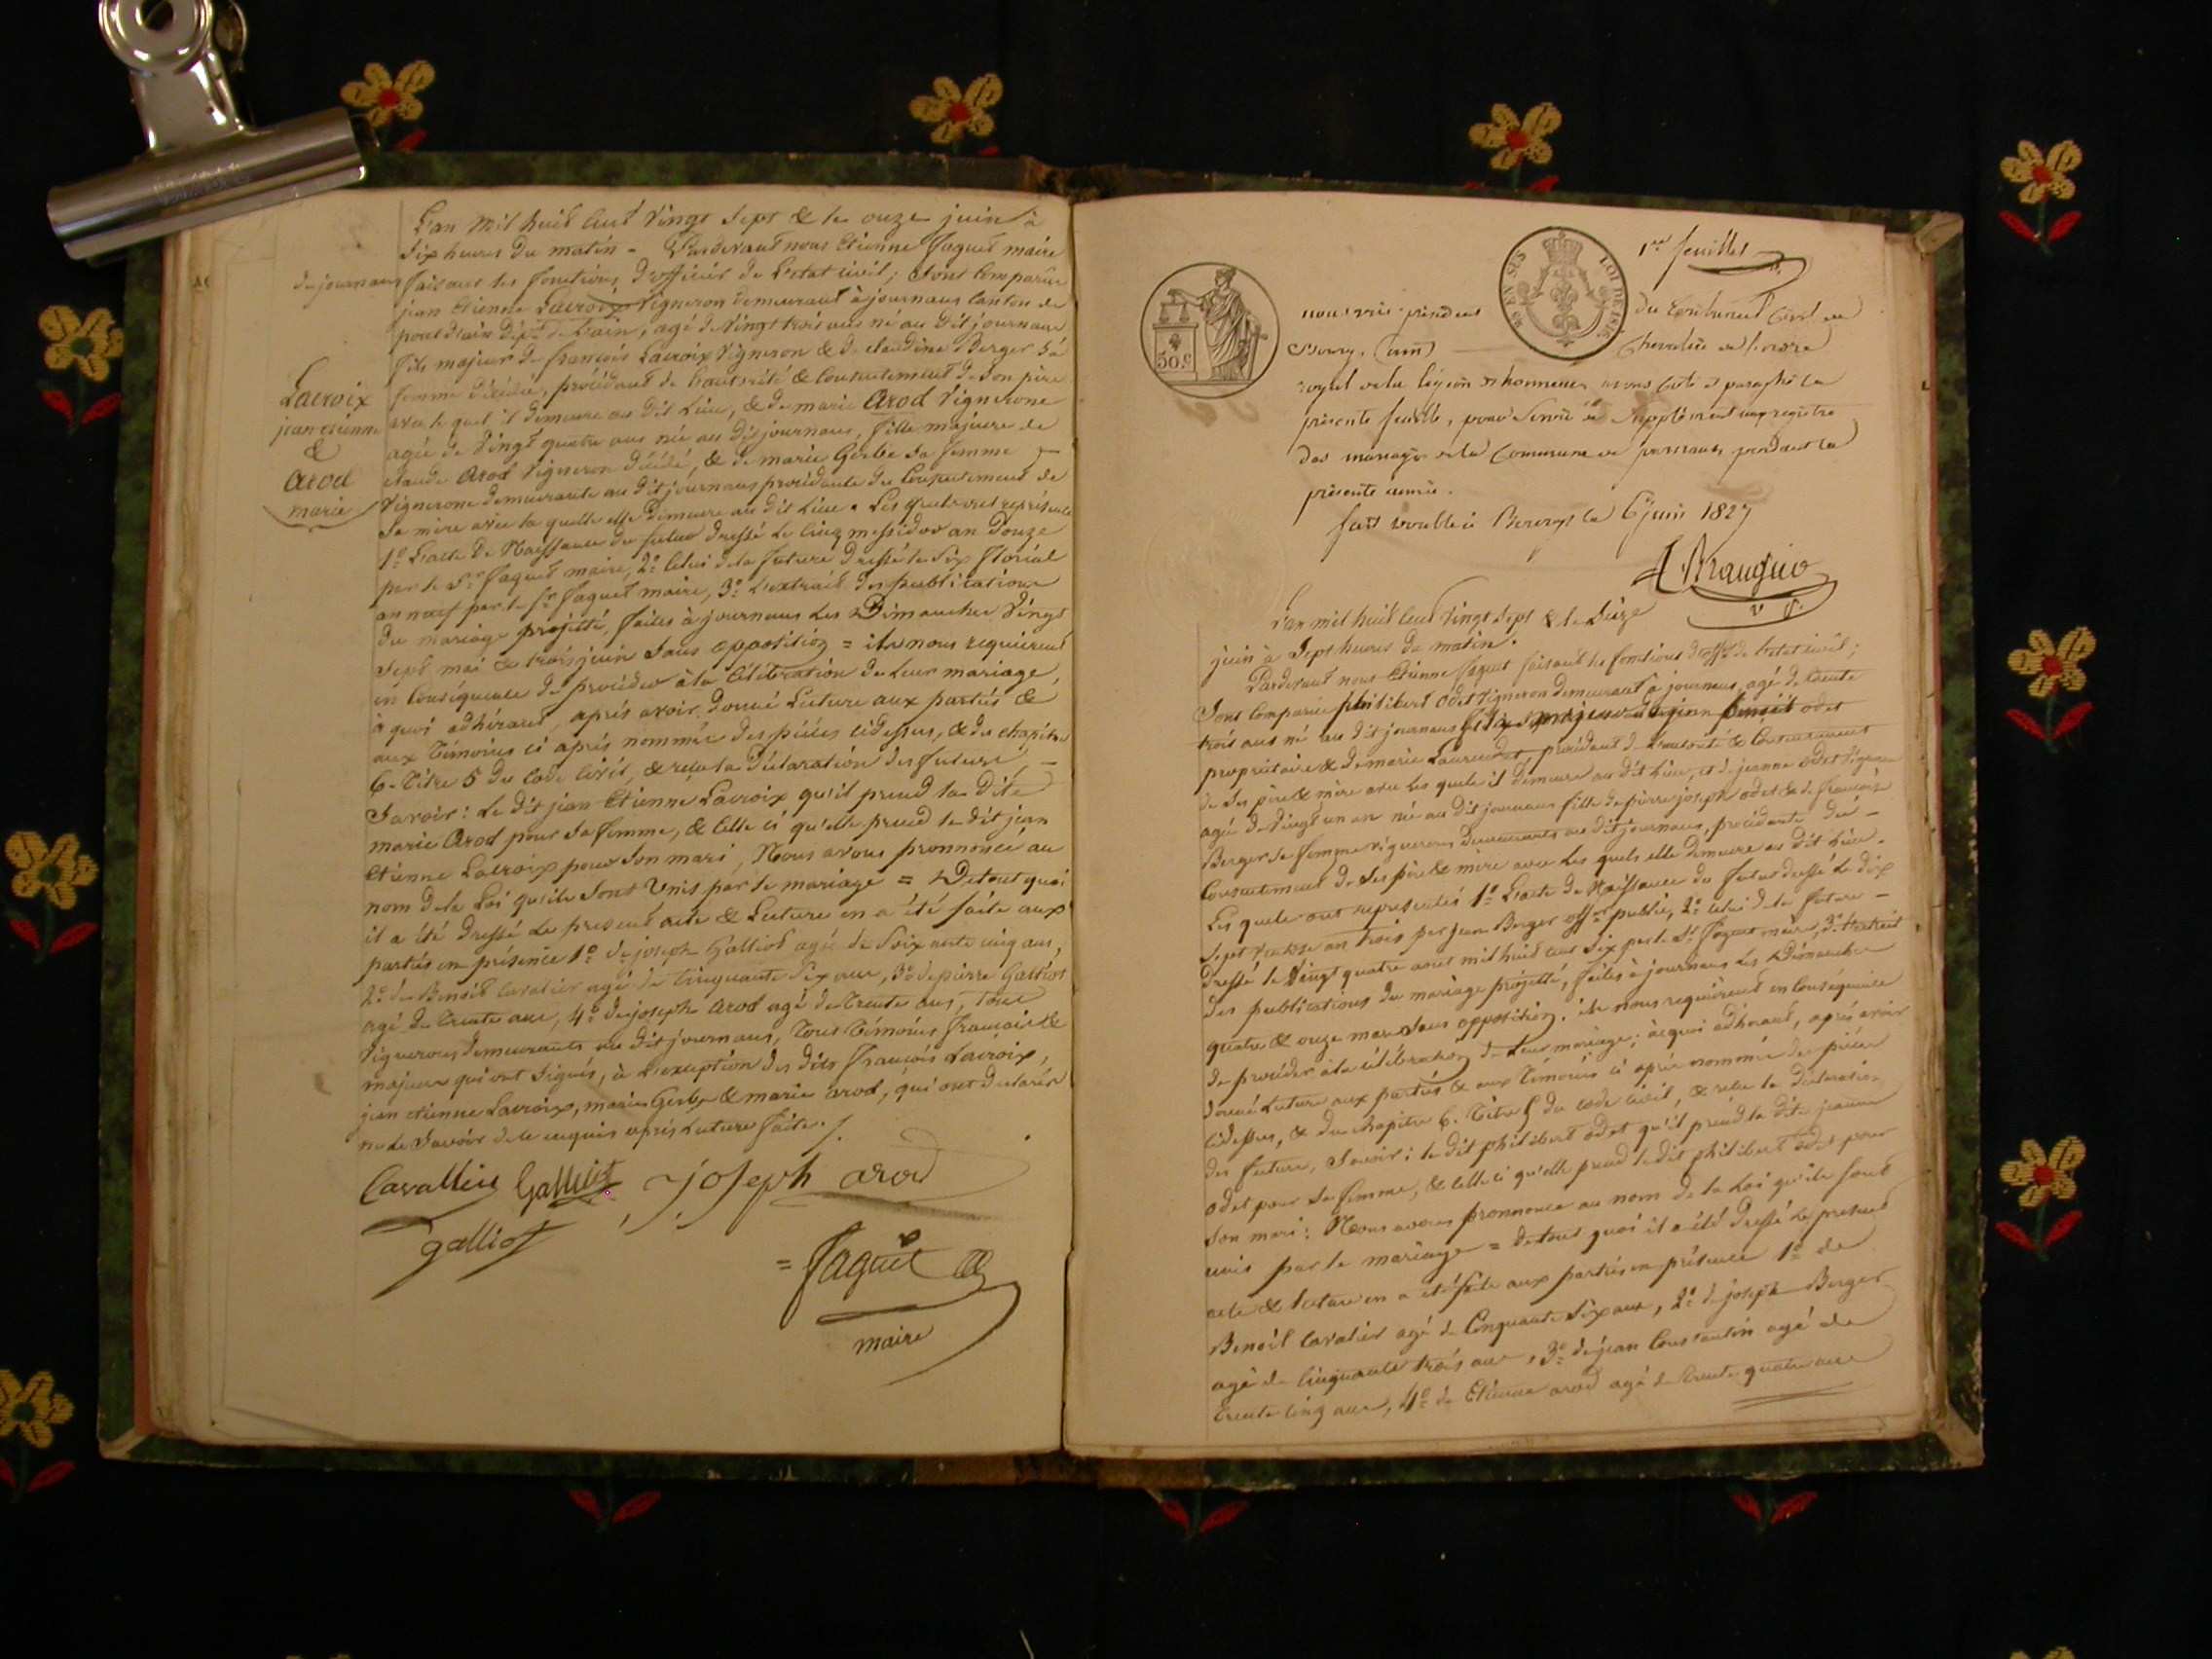 L'an mil huit cent vingt sept & le onze juin à
six heures du matin = Pardevant nous Etienne Jaquet maire
de journans faisant les fonctions d'officier de l'etat civil; sont comparus
jean Etienne Lacroix Vigneron demeurant à journans canton de
pont d'ain dépt de L'ain, agé de Vingt trois ans né au dit journans
fils majeur de françois Lacroix Vigneron & de claudine Berger sa
femme décédée, procédant de L'autorité & consentement de son père
avec le quel il demeure au dit Lieu, & de marie Arod Vignerone
agée de Vingt quatre ans née au dit journans, fille majeure de
claude Arod Vigneron décédé, & de marie Gerbe sa femme
Vignerone demeurante au dit journans procédante du consentement de
sa mère avec la quelle elle demeure au dit Lieu. Les quels ont représenté
1º L'acte de Naissance du futur dressé le cinq messidor an Douze
par le Sr Jaquet maire, 2º celui de la future dressé le six floréal
an neuf par le sr Jaquet maire, 3º L'extrait des publications
du mariage projetté, faites à journans les Dimanches Vingt
sept mai & trois juin sans opposition = ils nous requierent
en conséquence de procéder à la célébration de leur mariage,
à quoi adhérant, après avoir donné Lecture aux parties &
aux témoins ci après nommés des pièces cidessus, & du chapitre
6. titre 5 du code civil, & reçu la déclaration des futurs,
Savoir: Le dit jean Etienne Lacroix qu'il prend la dite
marie Arod pour sa femme, & celle ci qu'elle prend le dit jean
Etienne Lacroix pour son mari, Nous avons prononcé au
nom de la Loi qu'ils sont Unis par le mariage = De tout quoi
il a été dressé le present acte & Lecture en a été faite aux
parties en présence 1º de joseph Galliot agé de soixante cinq ans,
2º de Benoit Cavalier agé de cinquante six ans, 3º de pierre Galliot
agé de trente ans, 4º de joseph Arod agé de trente ans, tous
Vignerons demeurants au dit journans, tous témoins français &
majeurs qui ont signés, à L'exception des dits françois Lacroix,
jean etienne Lacroix, marie Gerbe & marie arod, qui ont declarés
ne le savoir de ce enquis après Lecture faite ./.
Cavallier Galliot joseph arod
galliot
= Jaquet
maire
Lacroix
jean etienne
&
arod
marie
1er feuillet
EN SUS LOI DE 1816
50 c.
nous vice président du tribunal civil de
Bourg, (ain) Chevalier de l'ordre
royal de la légion d'honneur avons coté et paraphé la
présente feuille, pour servir de supplément au registre
des mariages de la Commune de journans pendant la
présente année.
fait double à Bourg le 6 juin 1827
v. p.
L'an mil huit cent vingt sept & le seize
juin à sept heures du matin.
Pardevant nous Etienne Jaquet faisant les fonctions d'offr de l'etat civil;
Sont comparus philibert odet Vigneron demeurant à journans, agé de trente
trois ans né au dit journans fils majeur de benoit odet
propriétaire & de marie Laurendet, procédant de l'autorité & consentement
de ses père & mère avec les quels il demeure au dit Lieu, et de jeanne odet Vignerone
agée de vingt un ans née au dit journans fille de pierre joseph odet & de françoise
Berger sa femme vignerons demeurants au dit journans, procédante du
consentement de ses père & mère avec les quels elle demeure au dit Lieu.
Les quels ont representés 1º L'acte de Naissance du futur dressé le dix
sept an trois par jean Berger offer public, 2º celui de la future
dressé le vingt quatre aout mil huit cent six par le Sr Jaquet maire, 3º L'extrait
des publications du mariage projetté, faites à journans les Dimanches
quatre & onze mars sans opposition; ils nous requierent en conséquence
de procéder à la célébration de leur mariage; à quoi adhérant, après avoir
donné Lecture aux parties & aux témoins ci après nommés des pièces
cidessus, & du chapitre 6. titre 5 du code civil, & reçu la déclaration
des futurs, savoir: le dit philibert odet qu'il prend la dite jeanne
odet pour sa femme, & celle ci qu'elle prend le dit philibert odet pour
son mari: Nous avons prononcé au nom de la Loi qu'ils sont
unis par le mariage = de tout quoi il a été dressé le present
acte & lecture en a été faite aux parties en présence 1º de
Benoit Cavalier agé de cinquante six ans, 2º de joseph Berger
agé de cinquante trois ans, 3º de jean Constantin agé de
trente cinq ans, 4º de Etienne arod agé de trente quatre ans